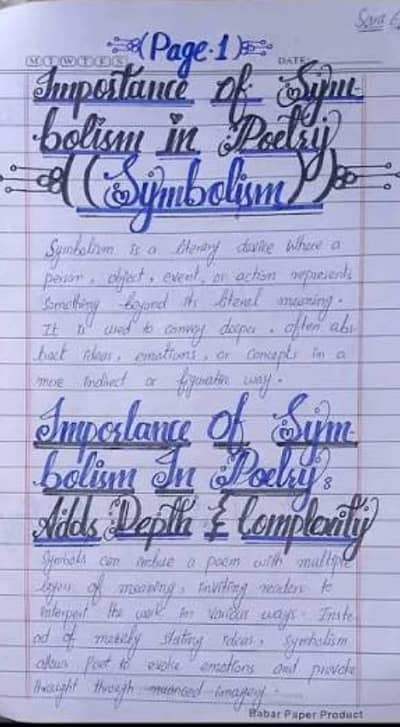 Sara
(Page.1)
M T W T F S
DATE
Importance of Sym-
bolism in Poetry
((Symbolism))
Symbolism is a literary device where a
person, object, event, or action represents
something beyond its literal meaning.
It is used to convey deeper, often abs
tract ideas, emotions, or concepts in a
more indirect or figurative way.
Importance of Sym-
bolism In Poetry:
Adds Depth & Complexity
Symbols can imbue a poem with multiple
layers of meaning, inviting readers to
interpret the work in various ways. Inste
ad of merely stating ideas, symbolism
allows Poet to evoke emotions and provoke
thought through nuanced imagery.
Babar Paper Product